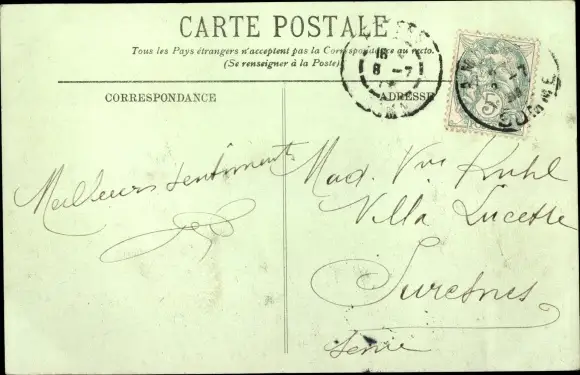 CARTE POSTALE
Tous les Pays étrangers n'acceptent pas la Correspondance au recto.
(Se renseigner à la Poste)
CORRESPONDANCE
ADRESSE
Meilleurs sentiments
Mad. Vve Kuhl
Villa Lucette
Suresnes
Seine
16
8 -7
5
SOMME